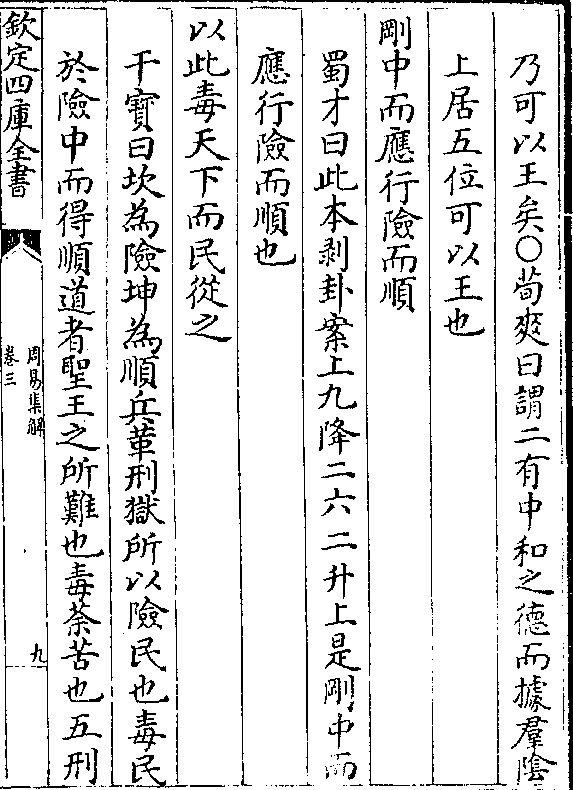 乃可以王矣○荀爽曰謂二有中和之德而據羣陰
上居五位可以王也
剛中而應行險而順
蜀才曰此本剥卦案上九降二六二升上是剛中而
應行險而順也
以此毒天下而民從之
干寶曰坎為險坤為順兵革刑獄所以險民也毒民
於險中而得順道者聖王之所難也毒荼苦也五刑
欽定四庫全書
周易集解
卷三
九